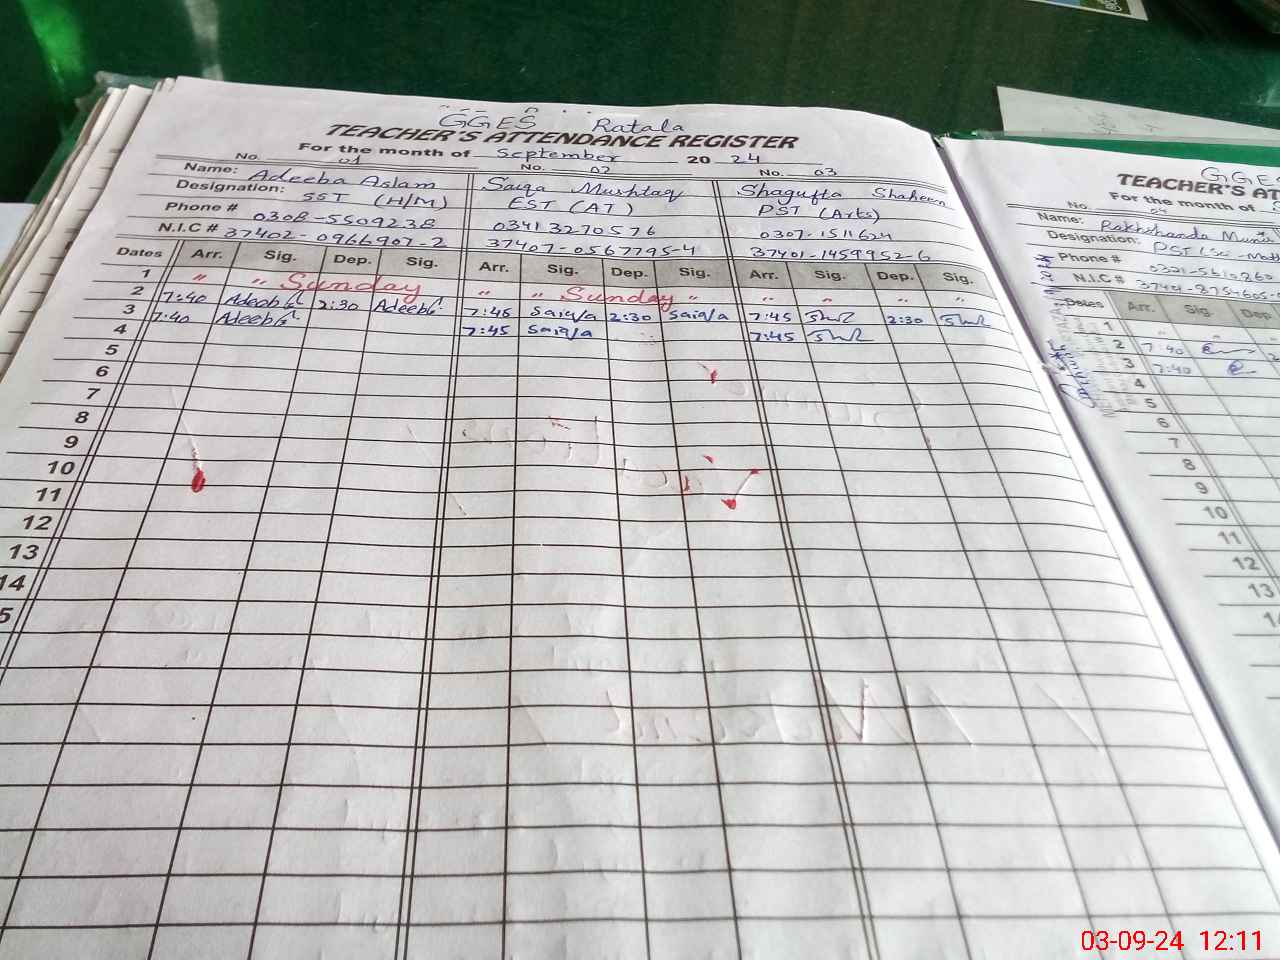 GGES Ratala
TEACHER'S ATTENDANCE REGISTER
For the month of September 20 24
No. 01 No. 02 No. 03
Name: Adeeba Aslam Saiqa Mushtaq Shagufta Shaheen
Designation: SST (H/M) EST (AT) PST (Arts)
Phone # 0308-5509238 03413270576 0307-1511624
N.I.C # 37402-0966907-2 37407-0567795-4 37401-1459952-6
Dates Arr. Sig. Dep. Sig. Arr. Sig. Dep. Sig. Arr. Sig. Dep. Sig.
1 " " Sunday " " Sunday " " " " "
2 7:40 Adeeba 2:30 Adeeba 7:45 Saiqa 2:30 Saiqa 7:45 2:30
3 7:40 Adeeba 7:45 Saiqa 7:45
4
5
6
7
8
9
10
11
12
13
14
5
GGES
TEACHER'S AT
For the month of
No. 04
Name: Rakhshanda
Designation: PST
Phone #
N.I.C #
Dates Arr. Sig. Dep
1 " "
2 7:40
3 7:40
4
5
6
7
8
9
10
11
12
13
03-09-24 12:11